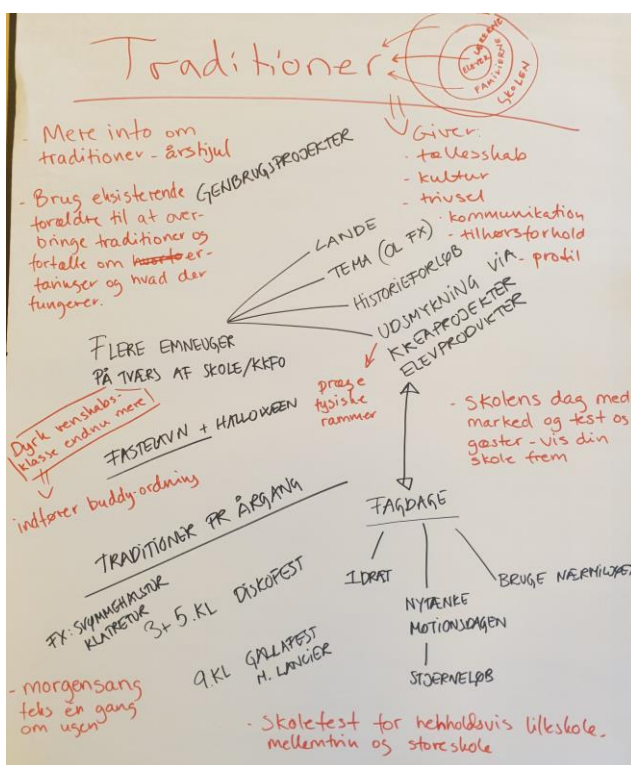 Traditioner
LÆRERNE
ELEVER
FAMILIERNE
SKOLEN
- Mere info om
traditioner - årshjul
- Brug eksisterende
forældre til at over-
bringe traditioner og
fortælle om er-
faringer og hvad der
fungerer.
GENBRUGSPROJEKTER
Giver:
- fællesskab
- kultur
- trivsel
- kommunikation
- tilhørsforhold
- profil
LANDE
TEMA (OL FX)
HISTORIEFORLØB
UDSMYKNING VIA
KREAPROJEKTER
ELEVPRODUKTER
FLERE EMNEUGER
PÅ TVÆRS AF SKOLE/KKFO
præge
fysiske
rammer
Dyrk venskabs-
klasse endnu mere!
indfører buddy-ordning
FASTELAVN + HALLOWEEN
- Skolens dag med
marked og fest os
gæster - vis din
skole frem
TRADITIONER PR ÅRGANG
FX: SVØMMEHALSTUR
KLATRETUR
3+5.KL DISKOFEST
9.KL GALLAFEST
M. LANCIER
FAGDAGE
IDRÆT
NYTÆNKE
MOTIONSDAGEN
STJERNELØB
BRUGE NÆRMILJØET
- morgensang
feks én gang
om ugen
- Skolefest for henholdsvis lilleskole,
mellemtrin og storeskole